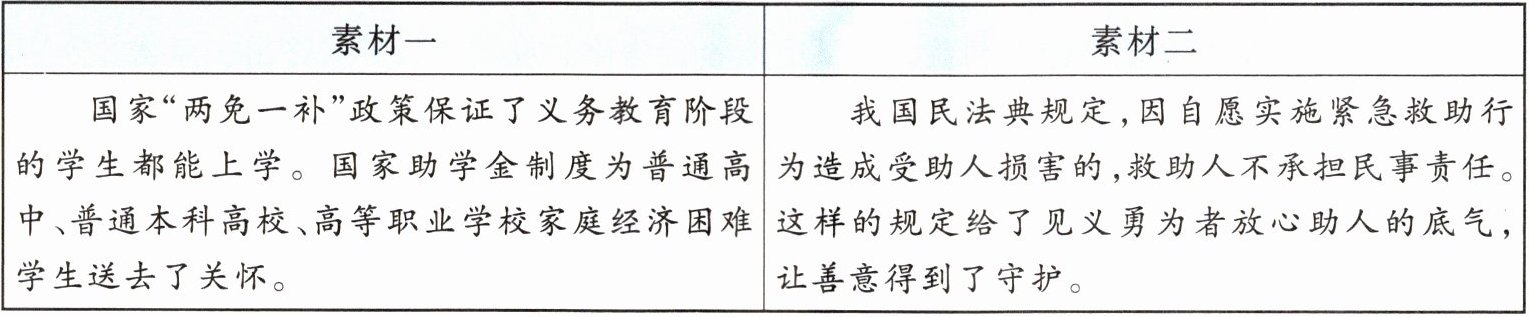 素材一
素材二
国家“两免一补”政策保证了义务教育阶段
的学生都能上学。国家助学金制度为普通高
中、普通本科高校、高等职业学校家庭经济困难
学生送去了关怀。
我国民法典规定,因自愿实施紧急救助行
为造成受助人损害的,救助人不承担民事责任。
这样的规定给了见义勇为者放心助人的底气,
让善意得到了守护。